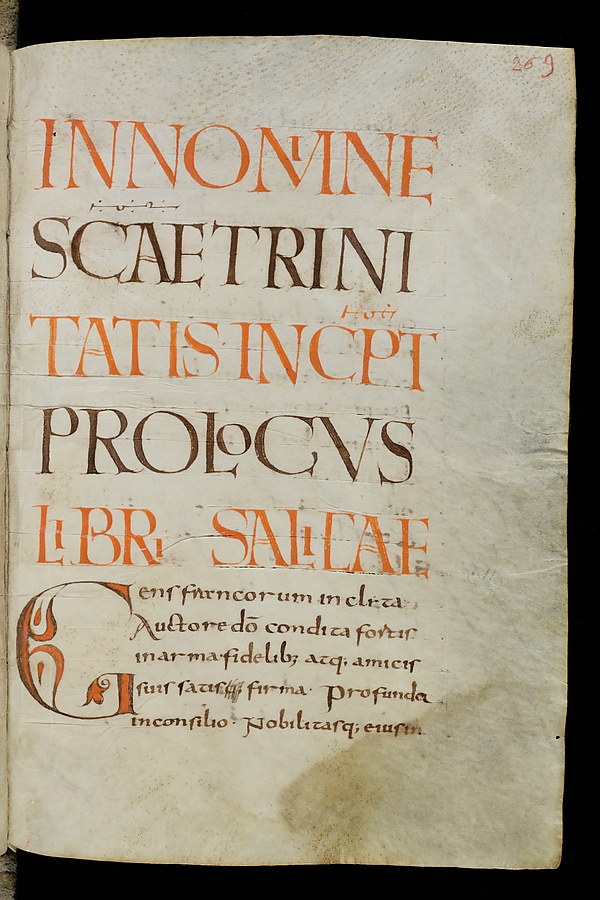 269
INNOMINE
SCAETRINI
TATIS·INCPT
PROLOGVS
LIBRI SALICAE
Gens francorum inclita
Auctore dō condita fortis
inarma·fidelib; atq; amicis
suis satis firma· Profunda
inconsilio· Nobilitasq; eiusin